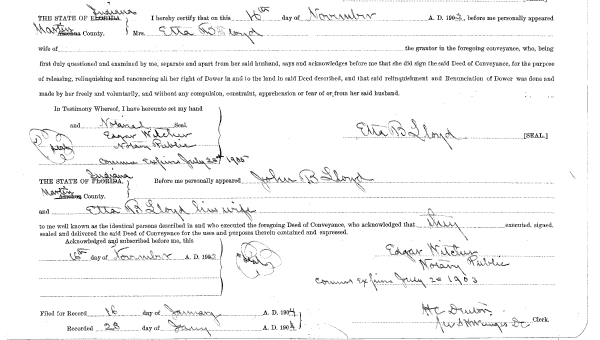 Indiana
THE STATE OF FLORIDA. I hereby certify that on this 16th day of November A. D. 1902, before me personally appeared
Martin County. Mrs. Etta B Lloyd
wife of the grantor in the foregoing conveyance, who, being
first duly questioned and examined by me, separate and apart from her said husband, says and acknowledges before me that she did sign the said Deed of Conveyance, for the purpose
of releasing, relinquishing and renouncing all her right of Dower in and to the land in said Deed described, and that said relinquishment and Renunciation of Dower was done and
made by her freely and voluntarily, and without any compulsion, constraint, apprehension or fear of or from her said husband.
In Testimony Whereof, I have hereunto set my hand
and Notarial Seal
Edgar Witcher
Notary Public
Seal
Etta B Lloyd [SEAL.]
Comms Expires July 20th 1905
Indiana
THE STATE OF FLORIDA. Before me personally appeared John B Lloyd
Martin County.
and Etta B Lloyd his wife
to me well known as the identical persons described in and who executed the foregoing Deed of Conveyance, who acknowledged that they executed, signed,
sealed and delivered the said Deed of Conveyance for the uses and purposes therein contained and expressed.
Acknowledged and subscribed before me, this
16th day of November A. D. 1902
Seal
Edgar Witcher
Notary Public
Comms Expires July 20 1905
Filed for Record 16 day of January A. D. 1904
Recorded 28 day of Jany A. D. 1904
Clerk.